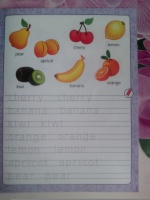 cherry
lemon
pear
apricot
kiwi
banana
orange
cherry cherry
banana
kiwi kiwi
orange orange
lemon lemon
apricot apricot
pear pear